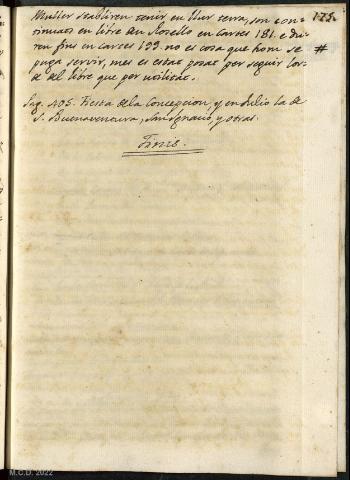 175.
Muller stabliren tenir en llur terra, son con-
tinuats en libre den Rosello en cartes 181. e du-
ren fins en cartes 199. no es cosa que hom se #
puga servir, mes es estat posat per seguir lor-
de del libre que per utilitat.
Pag. 405. Fiesta de la Concepcion, y en Julio la de
S. Buenaventura, San Ignacio, y otras.
Finis.
M.C.D. 2022